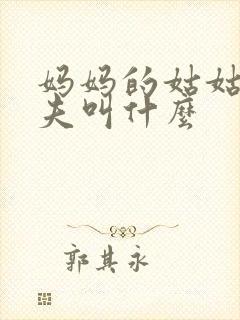 妈妈的姑姑
夫叫什麼
郭其永